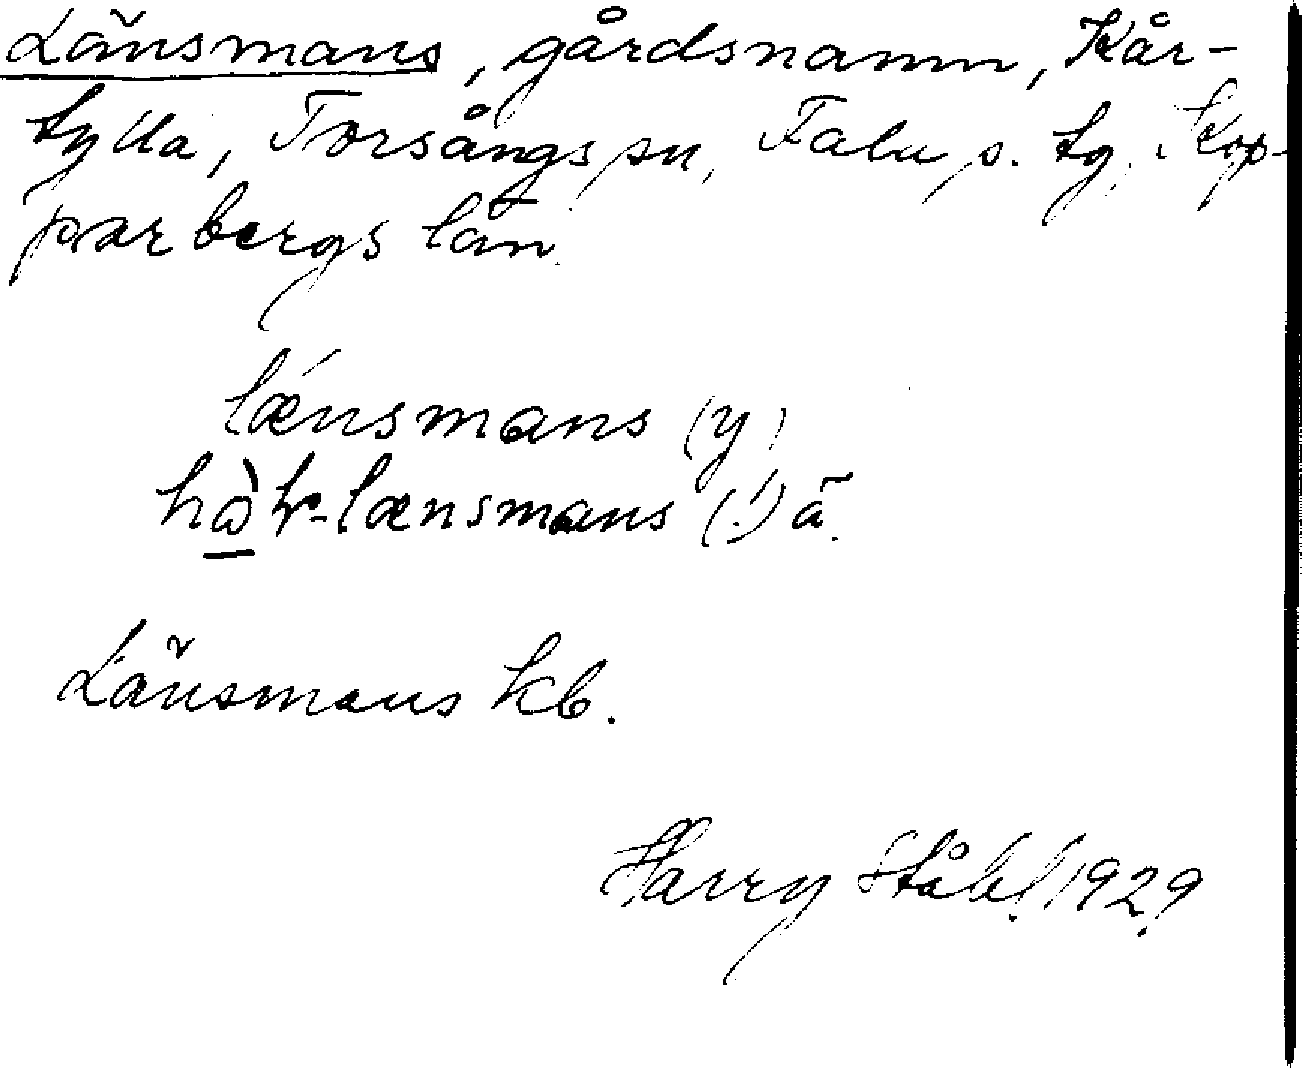 Länsmans, gårdsnamn, Kår-
tylla, Torsångs sn, Falu s. tg. Kop-
parbergs län.
lǽnsmans (y)
-lænsmans (!) ä.
Länsmans kb.
Harry Ståhl 1929